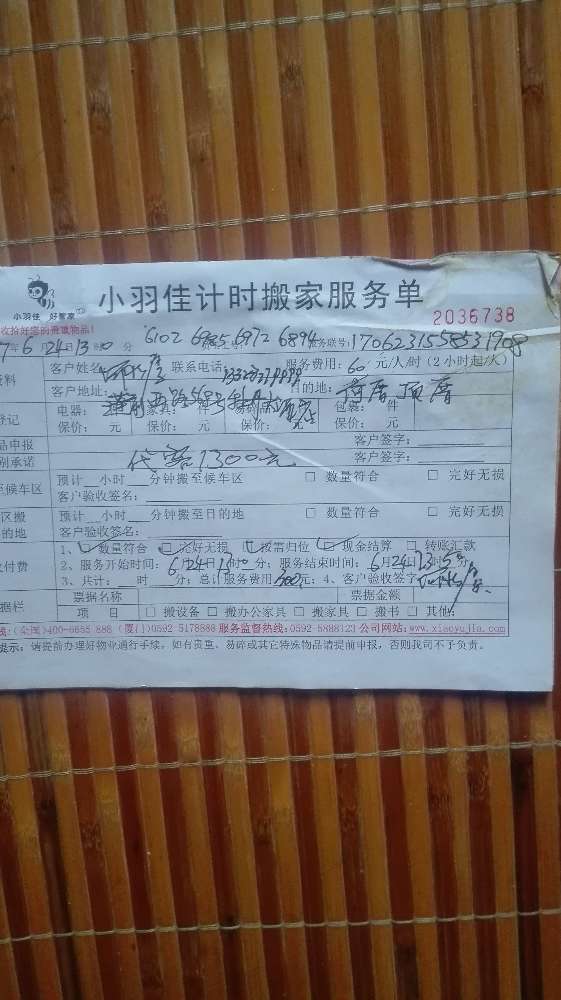 小羽佳 好管家
小羽佳计时搬家服务单
收拾好您的贵重物品!
2036738
7年6月24日13时0分 6102 6985 6972 6894 服务联号:1706231558531908
客户姓名: 联系电话: 服务费用:60元/人/时(2小时起/人)
客户地址: 目的地:
电器: 件 家具: 件 件 包裹: 件
保价: 元 保价: 元 保价: 元 保价: 元
品申报 客户签字:
别承诺 代客1300元 客户签字:
至候车区 预计__小时___分钟搬至候车区 □ 数量符合 □ 完好无损
客户验收签名:
区搬的地 预计__小时___分钟搬至目的地 □ 数量符合 □ 完好无损
客户验收签名:
1、□数量符合 □完好无损 □按需归位 □现金结算 □ 转账汇款
付费 2、服务开始时间:6月24日13时0分;服务结束时间:6月24日13时5分
3、共计:__时___分;总计服务费用1300元;4、客户验收签字
据栏 票据名称 票据金额
项 目 □ 搬设备 □ 搬办公家具 □ 搬家具 □ 搬书 □ 其他:
线:(全国)400-6655 888 (厦门)0592 5178888 服务监督热线:0592-5888123 公司网站:www.xiaoyujia.com
提示:请提前办理好物业通行手续。如有贵重、易碎或其它特殊物品请提前申报,否则我司不予负责。